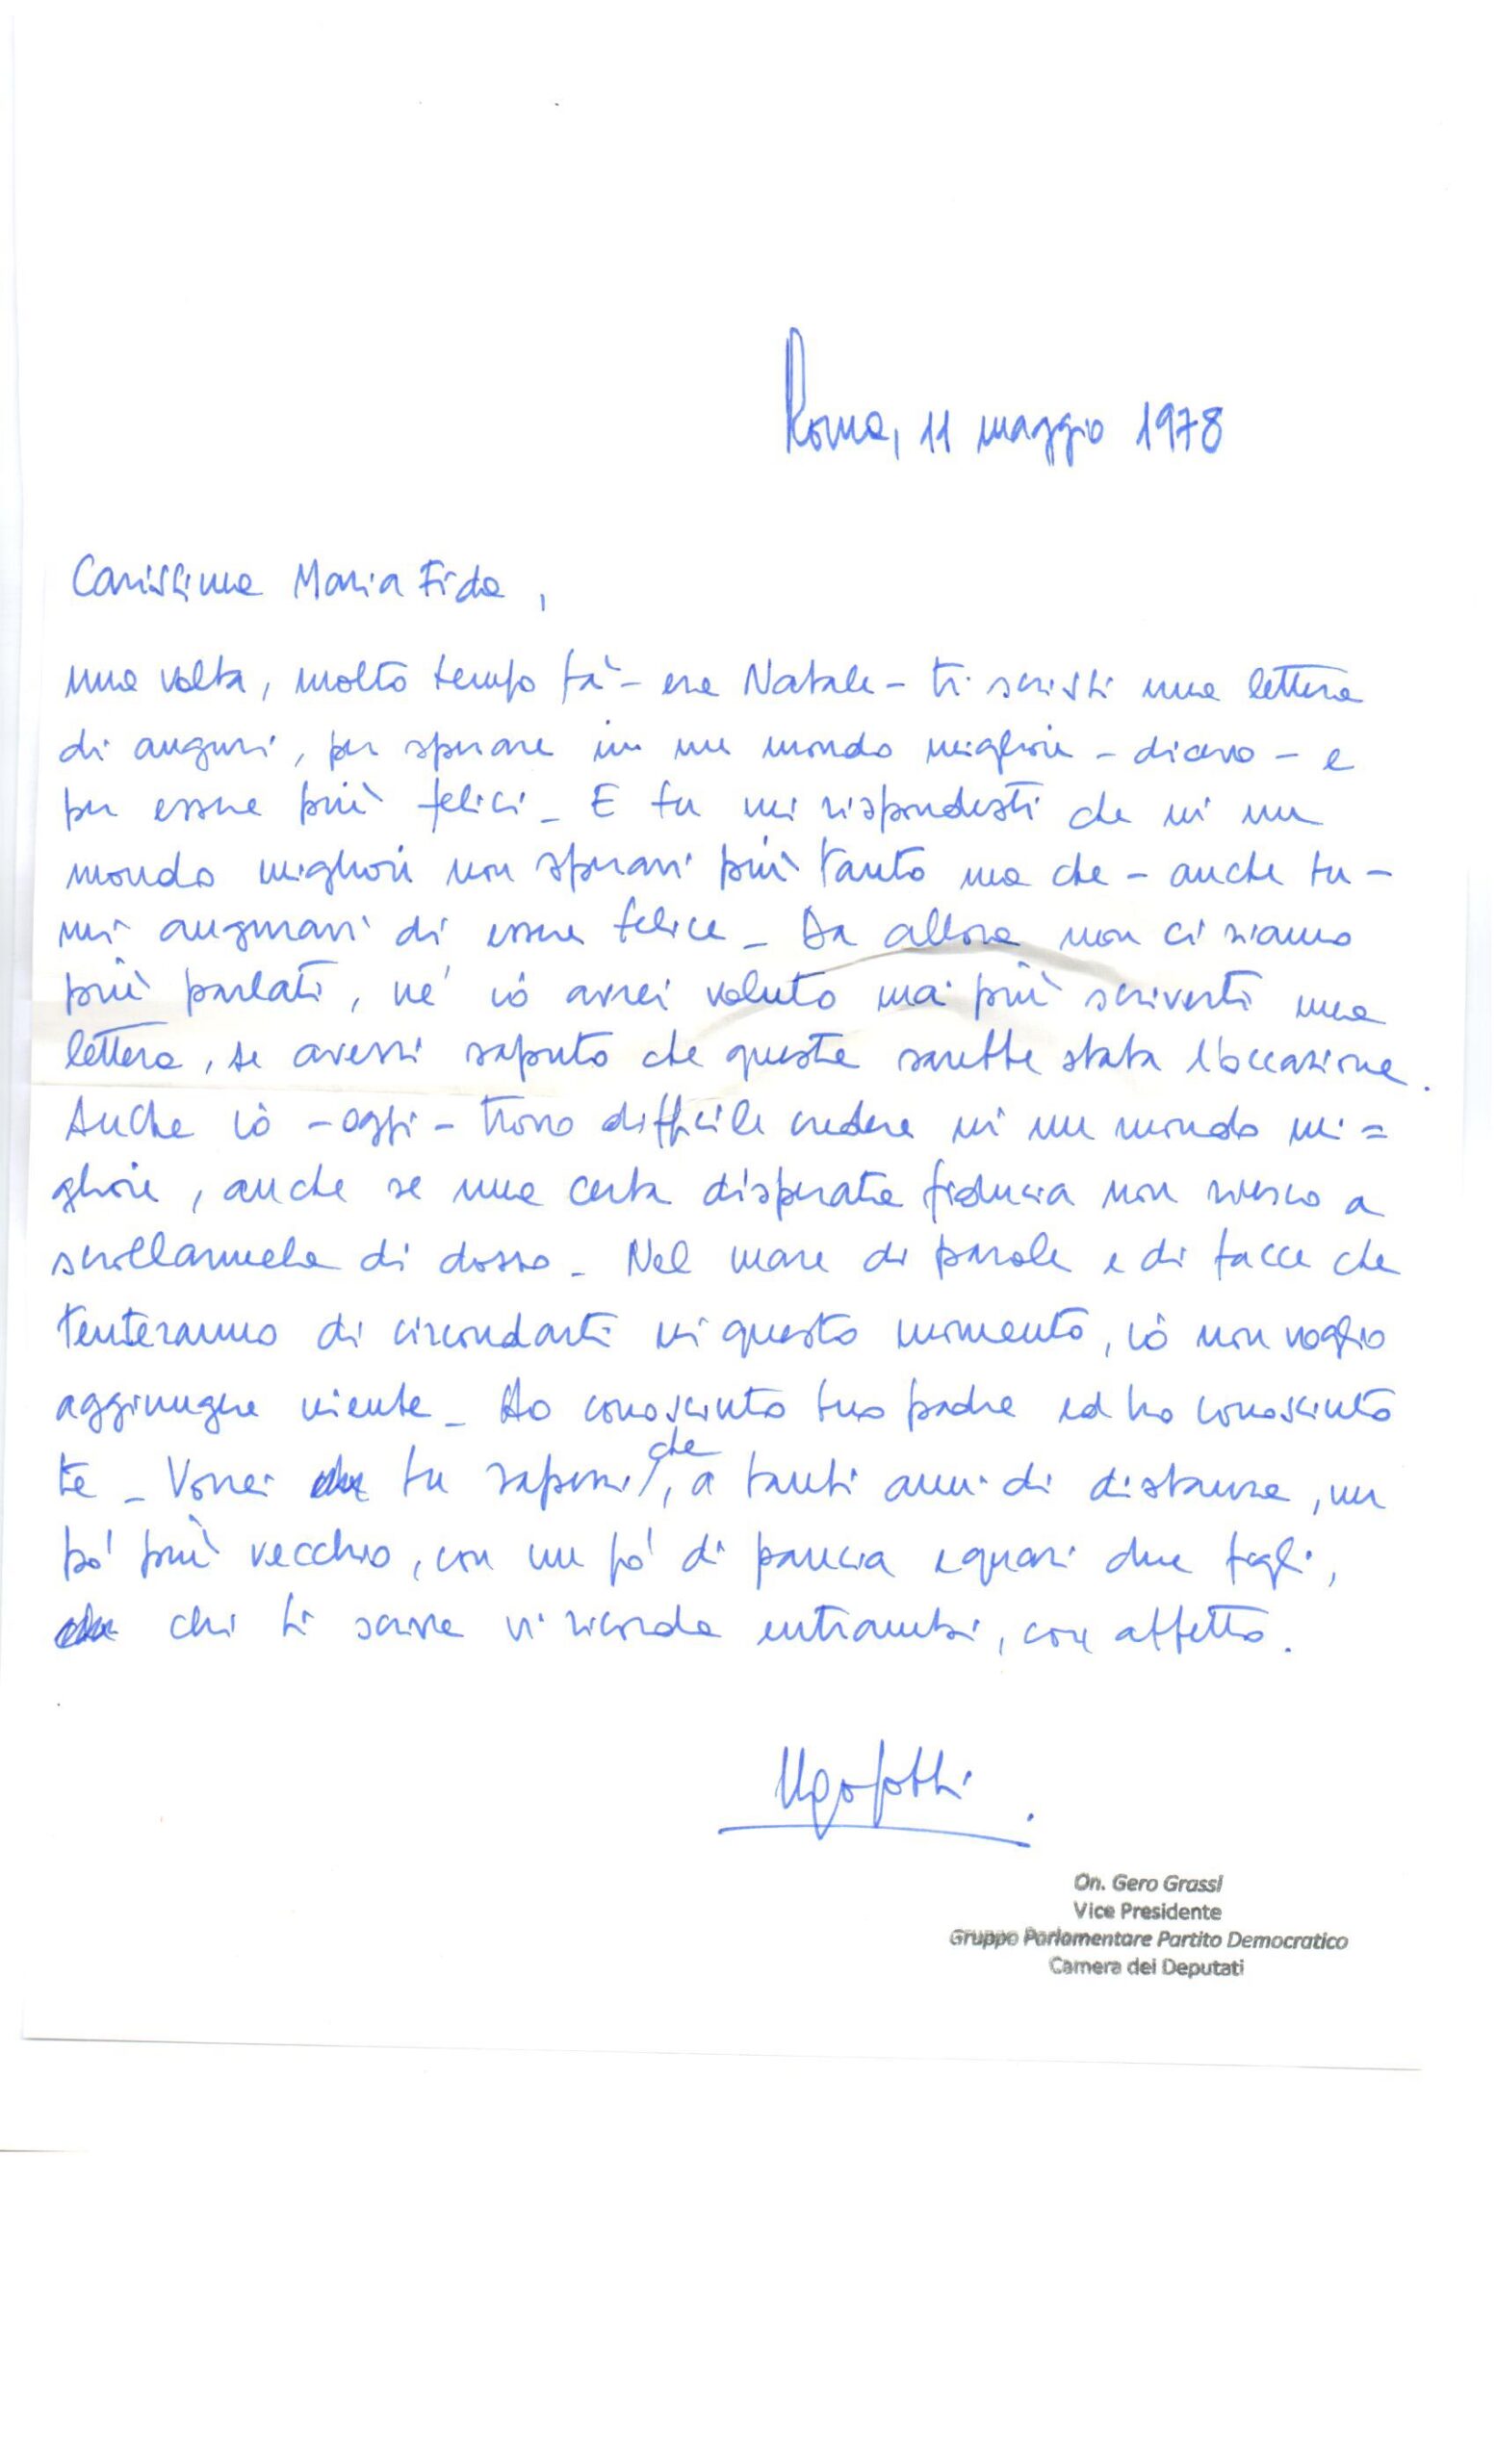 Roma, 11 maggio 1978
Carissima Maria Fida,
una volta, molto tempo fà - era Natale - ti scrissi una lettera
di auguri, per sperare in un mondo migliore - dicevo - e
per essere più felici - E tu mi rispondesti che in un
mondo migliore non speravi più tanto ma che - anche tu -
mi auguravi di essere felice - Da allora non ci siamo
più parlati, né io avrei voluto mai più scriverti una
lettera, se avessi saputo che questa sarebbe stata l'occasione.
Anche io - oggi - trovo difficile credere in un mondo mi=
gliore, anche se una certa disperata fiducia non riesco a
scrollarmela di dosso - Nel mare di parole e di facce che
tenteranno di circondarti in questo momento, io non voglio
aggiungere niente - Ho conosciuto tuo padre ed ho conosciuto
te - Vorrei tu sapessi che, a tanti anni di distanza, un
po' più vecchio, con un pò di pancia e quasi due figli,
chi ti scrive vi ricorda entrambi, con affetto.
On. Gero Grassi
Vice Presidente
Gruppo Parlamentare Partito Democratico
Camera dei Deputati